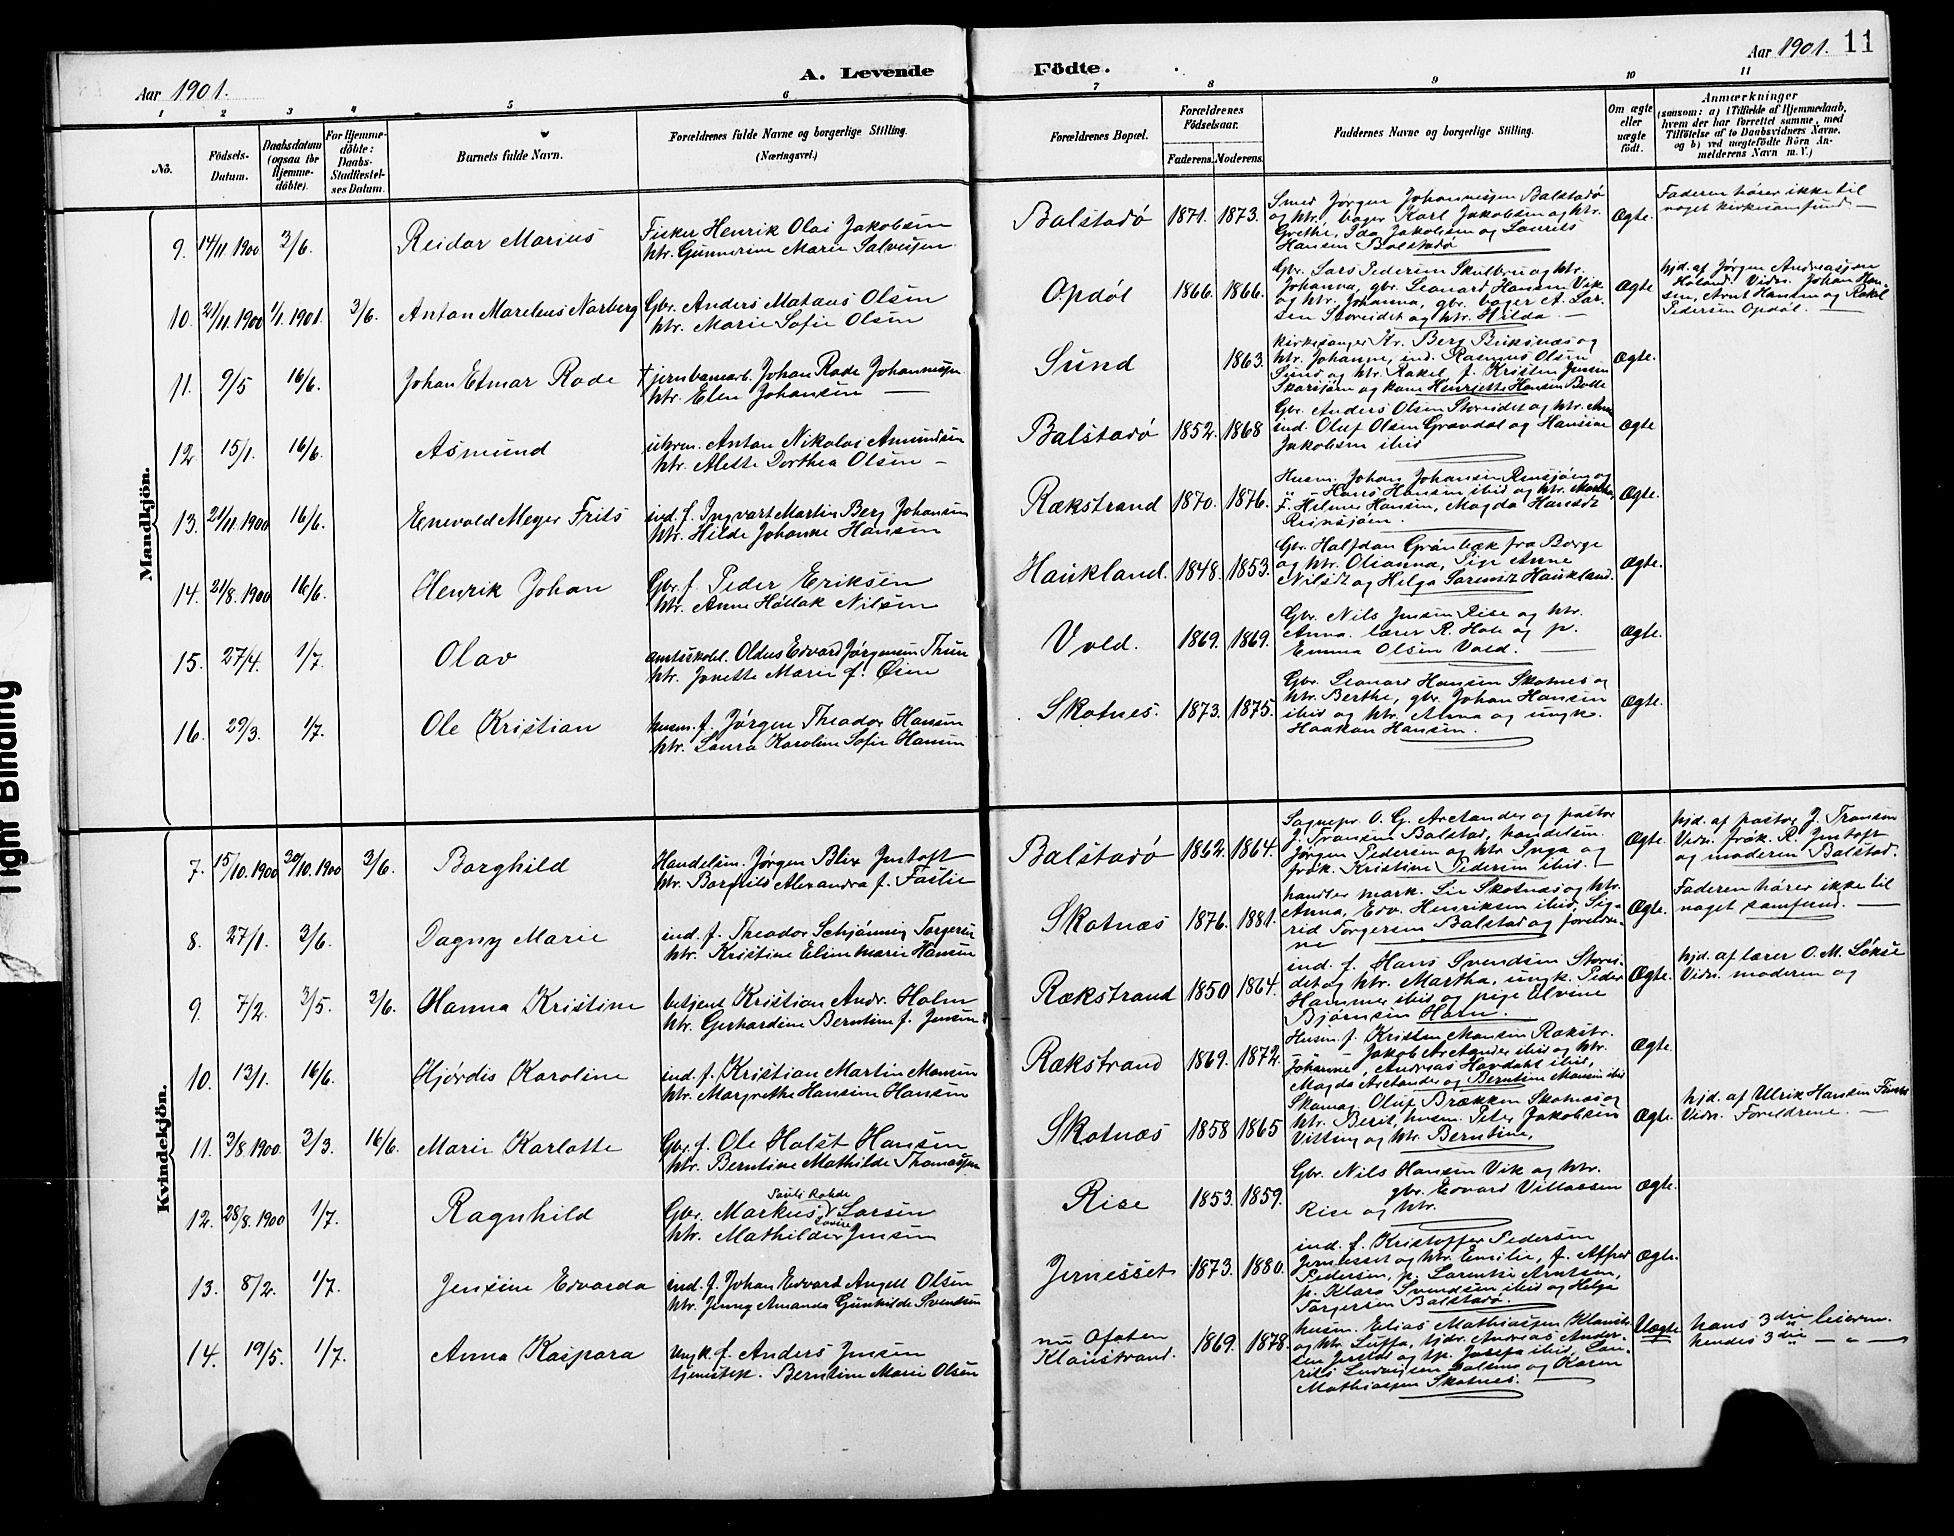 Aar 1901.
A. Levende Födte.
Aar 1901. 11
1 2 3 4 5 6 7 8 9 10 11
No.
Födsels-Datum.
Daabsdatum (ogsaa for Hjemmedöbte).
For Hjemmedöbte: Daabs-Stadfæstelses Datum.
Barnets fulde Navn.
Forældrenes fulde Navne og borgerlige Stilling. (Næringsvei.)
Forældrenes Bopæl.
Forældrenes Födselsaar.
Faderens. Moderens.
Faddernes Navne og borgerlige Stilling.
Om ægte eller uægte födt.
Anmærkninger
(saasom: a) i Tilfælde af Hjemmedaab, hvem der har forrettet samme, med Tilföielse af to Daabsvidners Navne, og b) ved uægtefödte Börn Anmelderens Navn m. V.)
Mandkjön.
9. 14/11 1900 2/6. Reidar Marius
Fisker Henrik Olai Jakobsen
htr. Gunnerine Marie Salvesen
Balstadö 1871. 1873.
Smed Jørgen Johannesen Balstadö
og htr, bager Karl Jakobsen og htr.
Grethe, Ida Jakobsen og Laurits
Hansen Balstadö
Ægte.
Faderen hører ikke til
noget kirkesamfund.
10. 21/11 1900 1/1 1901. 3/6. Anton Marelius Narberg
Gbr. Anders Mataus Olsen
htr. Marie Sofie Olsen
Opdøl 1866. 1866.
Gbr. Lars Pedersen Skulbru og htr.
Johanna, gbr. Leonard Hansen Vik
og htr. Johanna, gbr. bager A. Lar-
sen Storeidet og htr. Hilda.
Ægte
hjd. af Jørgen Andreassen
Høland. Vidn. Johan Han-
sen, Arnt Hansen og Rakel
Pedersen Opdøl.
11. 9/5 16/6. Johan Etmar Rade
† jernbanearb. Johan Rade Johannesen
htr. Elen Johansen
Sund 1863.
kirkesanger Kr. Berg Buksnæs og
htr. Johanne, ind. Rasmus Olsen
Sund og htr. Rakel, f. Kristen Jensen
Skarsjøen og kone Henriette Hansen Bolle
Ægte.
12. 15/1. 16/6. Asmund
Anton Nikolai Amundsen
htr. Alette Dorthea Olsen
Balstadö 1852. 1868
Gbr. Anders Olsen Storeidet og htr. Anne
ind. Oluf Olsen Gravdal og Hansine
Jakobsen ibid
Ægte
13. 21/11 1900 16/6. Enevold Meyer Frits
ind. f. Ingvart Martin Berg Johansen
htr. Hilde Johanne Hansen
Rækstrand 1870. 1876.
Husm. Johan Johansen Rensjøen og
" Hans Hansen ibid og htr. Martha,
F. Helmer Hansen, Magda Hansdt
Reinsjøen.
Ægte.
14. 21/8. 1900 16/6. Henrik Johan
Gbr. f. Peder Eriksen
htr. Anne Høllak Nilsen
Haukland. 1848. 1853.
Gbr. Halfdan Grönbæk fra Borge
og htr. Olianna, Pige Anne
Nilsdt og Helga Sørensdt Haukland.
Ægte.
15. 27/4. 1/7. Olav
amtsskolel. Oldus Edvard Jørgensen Thun
htr. Jonette Marie f. Øien
Vold. 1869. 1869.
Gbr. Nils Jensen Rise og htr.
Anna. lærer R. Hole og p.
Emma Olsen Vold.
Ægte.
16. 29/3. 1/7. Ole Kristian
husm. f. Jørgen Theodor Hansen
htr. Laura Karoline Sofie Hansen
Skotnes. 1873. 1875.
Gbr. Leonard Hansen Skotnes og
htr. Berthe, gbr. Johan Hansen
ibid og htr. Anna og ungk.
Haakon Hansen.
Ægte.
Kvindekjön.
7. 15/10. 1900 30/10. 1900 2/6. Borghild
Handelsm. Jørgen Blix Jentoft
htr. Borghild Alexandra f. Faslie
Balstadö 1862. 1864.
Sognepr. O. G. Arctander og pastor
J. Fransen Balstad, handelsm.
Jørgen Pedersen og htr Inga og
frøk. Kristine Pedersen ibid.
Ægte.
hjd. af pastor J. Fransen
Vidn. frøk. R. Jentoft
og moderen Balstad.
8. 27/1. 2/6. Dagny Marie
ind. f. Theodor Schjønning Torgersen
htr. Kristine Elinemarie Hansen
Skotnæs 1876. 1881.
handler mark. Lie Skotnæs og htr.
Anna, Edv. Henriksen ibid, Sig-
rid Torgersen Balstad og foreldre-
ne
Ægte.
Faderen hører ikke til
noget samfund.
9. 7/2. 2/5. 2/6. Hanna Kristine
betjent Kristian Andr. Holm
htr. Gerhardine Berntine f. Jensen
Rækstrand 1850 1864.
ind. f. Hans Svendsen Storei-
det og htr. Martha, ungk. Peder
Hammer ibid og pige Elvine
Bjørnsen Havn.
Ægte.
hjd. af lærer O. M. Løkse
Vidn. moderen og
10. 13/1. 16/6. Hjördis Karoline
ind. f. Kristian Martin Monsen
htr. Margrethe Hansine Hansen
Rækstrand 1869. 1872.
Husm. f. Kristen Monsen Rækstr.
Johanne, Jakob Arctander ibid og htr.
Andreas Havdahl ibid,
Magda Arctander og Berntine Monsen ibid
Ægte.
11. 3/8 1900. 2/3. 16/6. Marie Karlotte
Gbr. f. Ole Holst Hansen
htr. Berntine Mathilde Thomassen
Skotnæs 1858 1865
Skomag. Oluf Brækken Skotnæs og
htr. Berit, husm. Peter Jakobsen
Vitting og htr. Berntine,
Ægte.
hjd. af Ulrik Hansen
Vidn. Foreldrene.
12. 28/8. 1900 1/7. Ragnhild
Gbr. Markus Pauls Rohde Larsen
htr. Mathilde Lovise Jensen
Rise 1853. 1859.
Gbr. Nils Hansen Vik og htr.
gbr. Edvard Villassen
Rise og htr.
Ægte.
13. 8/2. 1/7. Jensine Edvarda
ind. f. Johan Edvard Angell Olsen
htr. Jenny Amanda Gunhilde Svendsen
Jernesset 1873. 1880.
ind. f. Kristoffer Pedersen
Jernesset og htr. Emilie, f. Alfred
Pedersen, p. Larentse Arntsen,
p. Klara Svendsen ibid og Helga
Torgersen Balstadö.
Ægte.
14. 19/5. 1/7. Anna Kaspara
Ungk. f. Anders Jensen
tjenestep. Berntine Marie Olsen
nu Ofoten
Klaustrand. 1869. 1878.
husm. Elias Mathiassen Klaustr.
og htr Luffa, tjdr. Andreas Ander-
sen Jerstad og tp. Josefa ibid, Lau-
rits Ludvigsen og Karen
Mathiassen Skotnes.
Uægte
hans 3die leierm.
hendes 3die — " —
Tight Binding